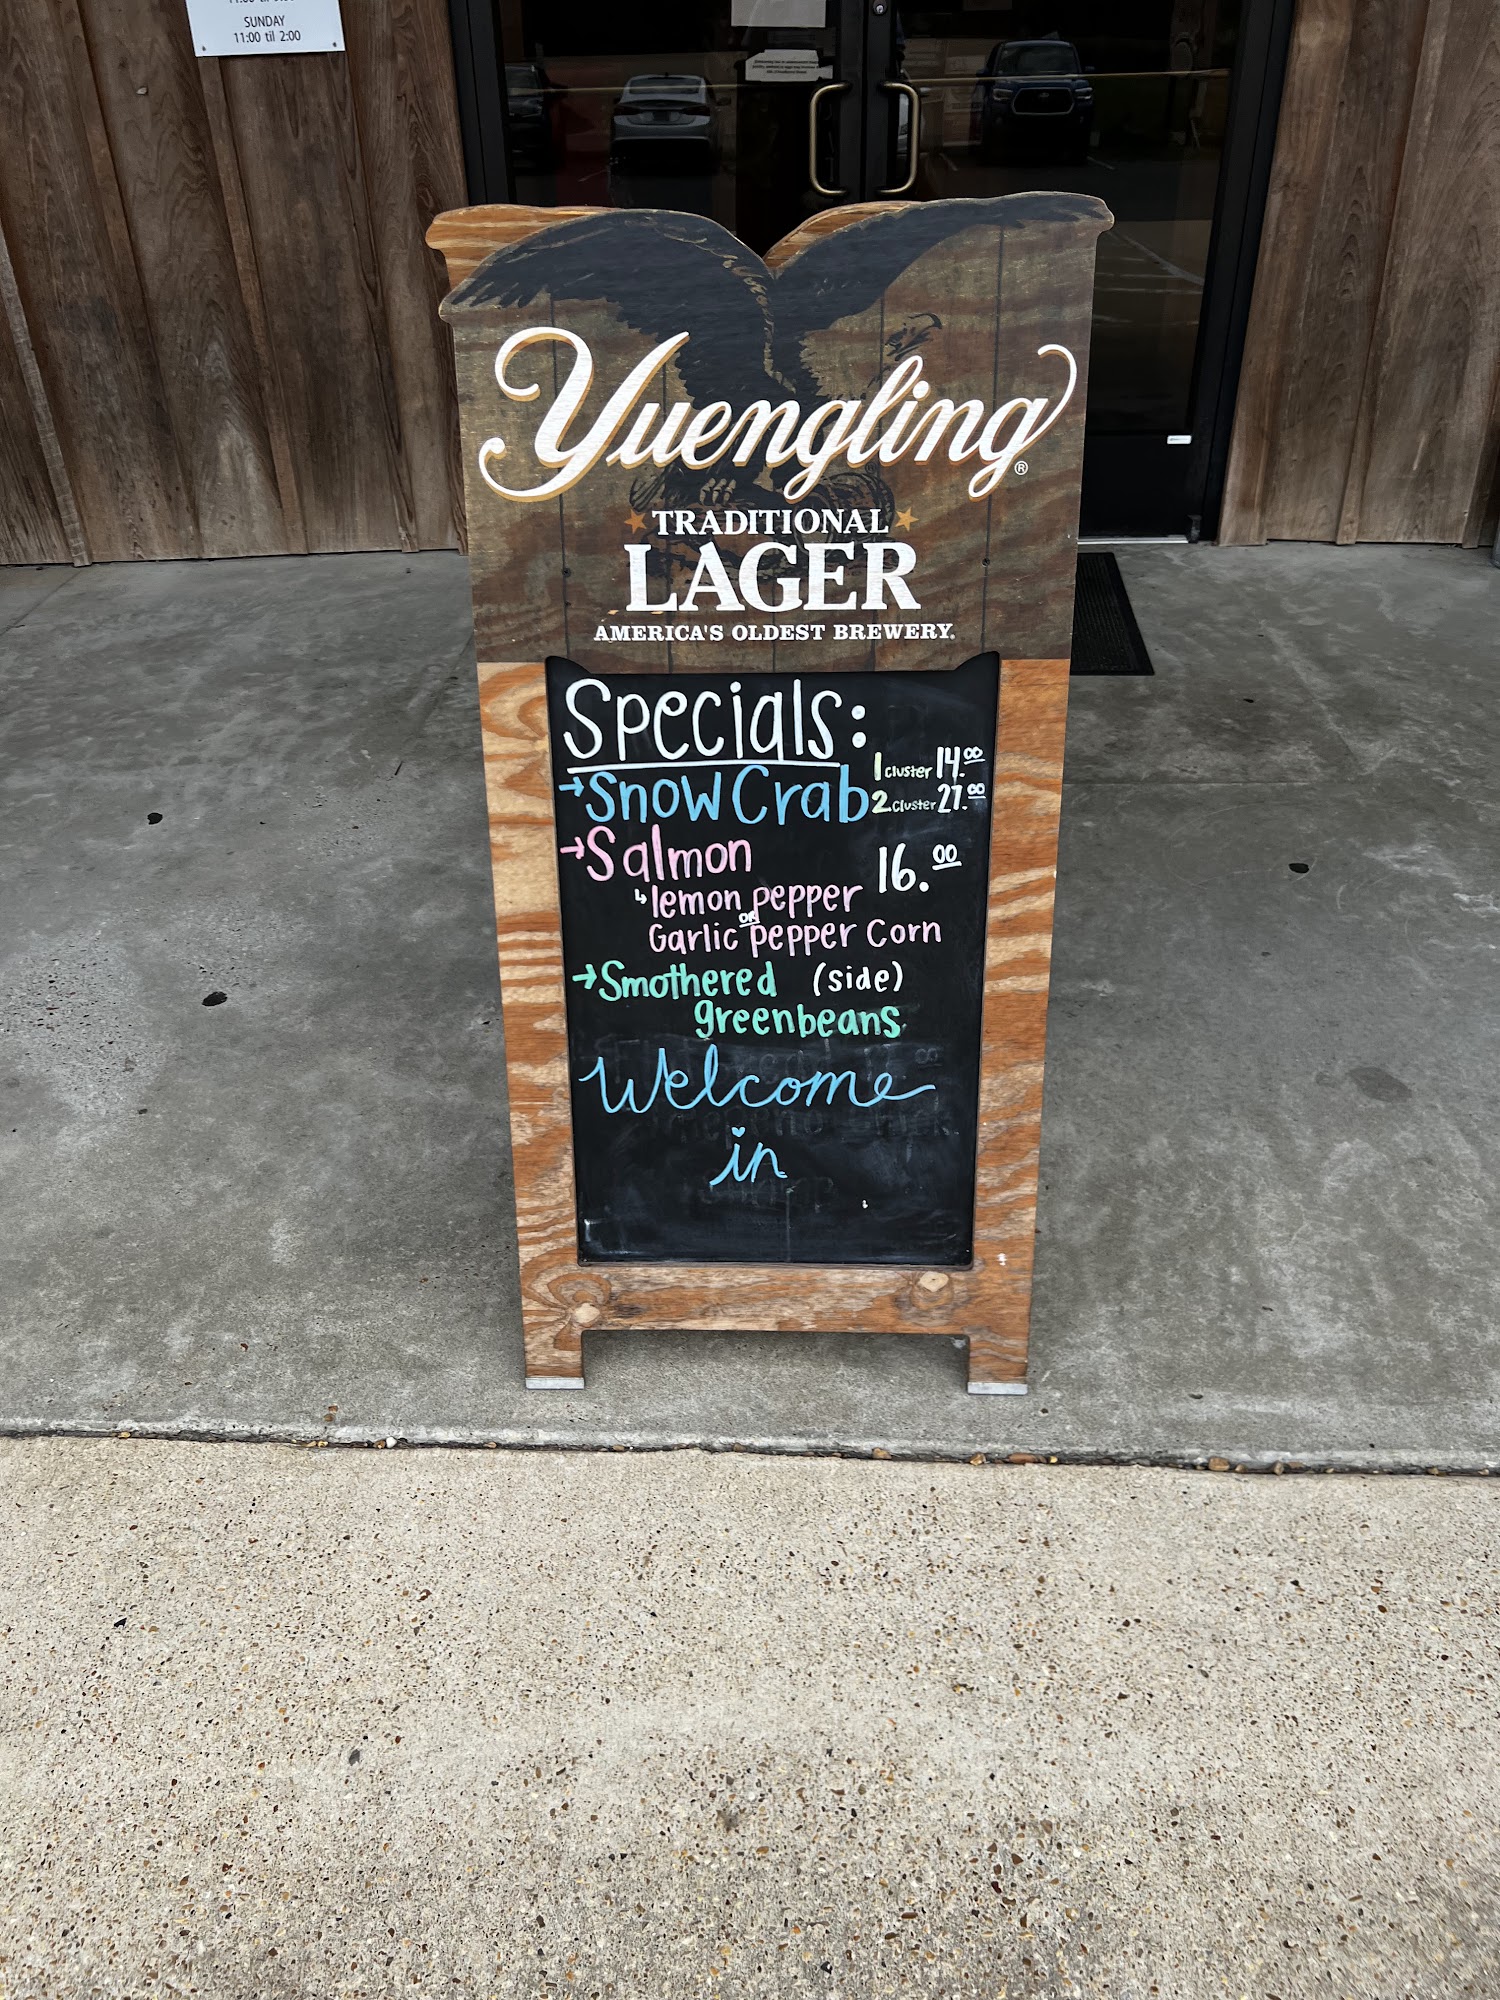 SUNDAY
11:00 til 2:00
Yuengling®
TRADITIONAL
LAGER
AMERICA'S OLDEST BREWERY.
Specials:
→Snow Crab 1 cluster 14.00
2 cluster 27.00
→Salmon 16.00
↳lemon pepper
OR
Garlic pepper Corn
→Smothered (side)
greenbeans
Welcome
in